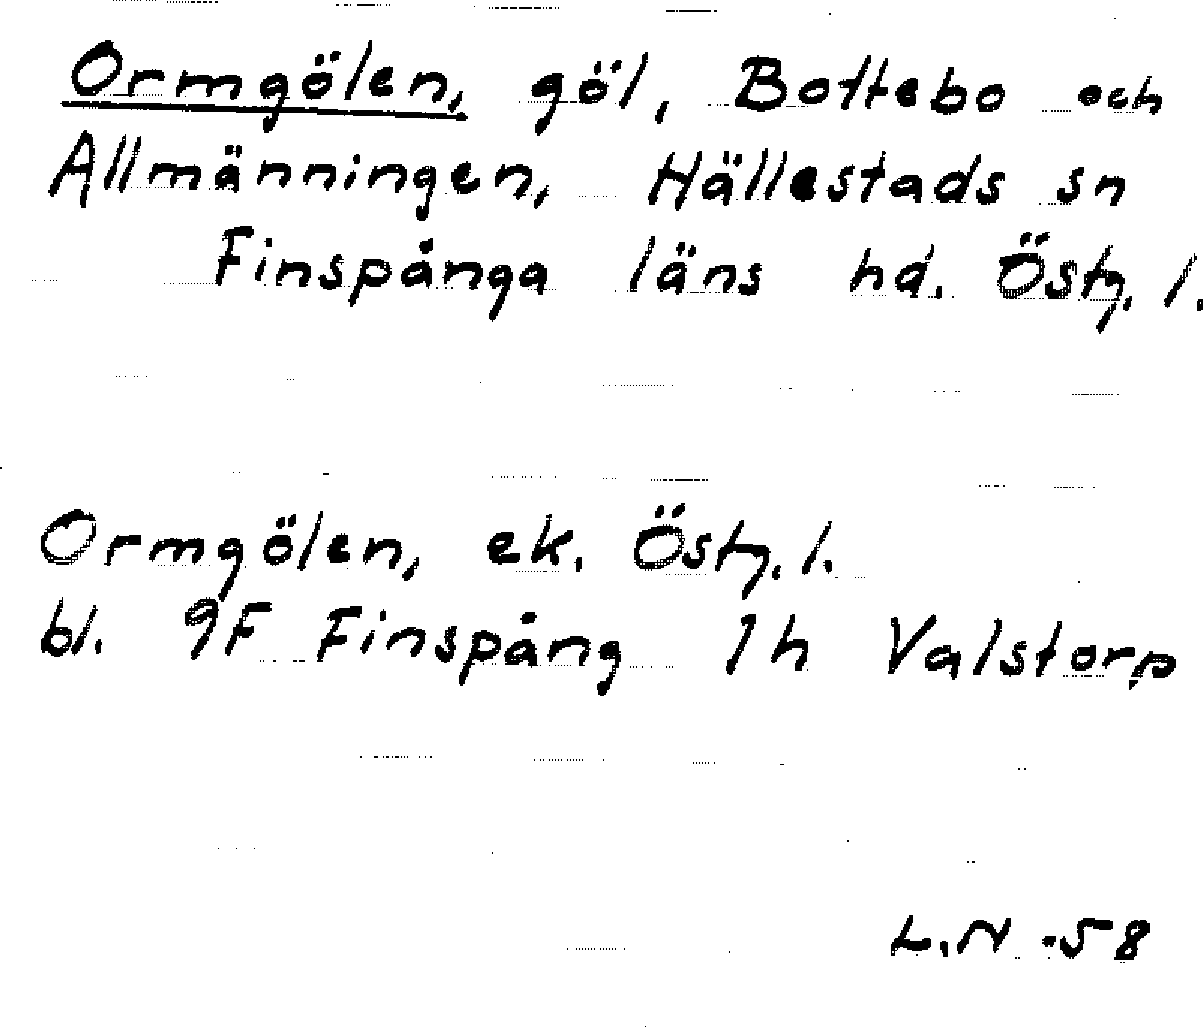 Ormgölen, göl, Bottebo och
Allmänningen, Hällestads sn
Finspånga läns hd. Östg. l.
Ormgölen, ek. Östg. l.
bl. 9F Finspång 1h Valstorp
L.N -58